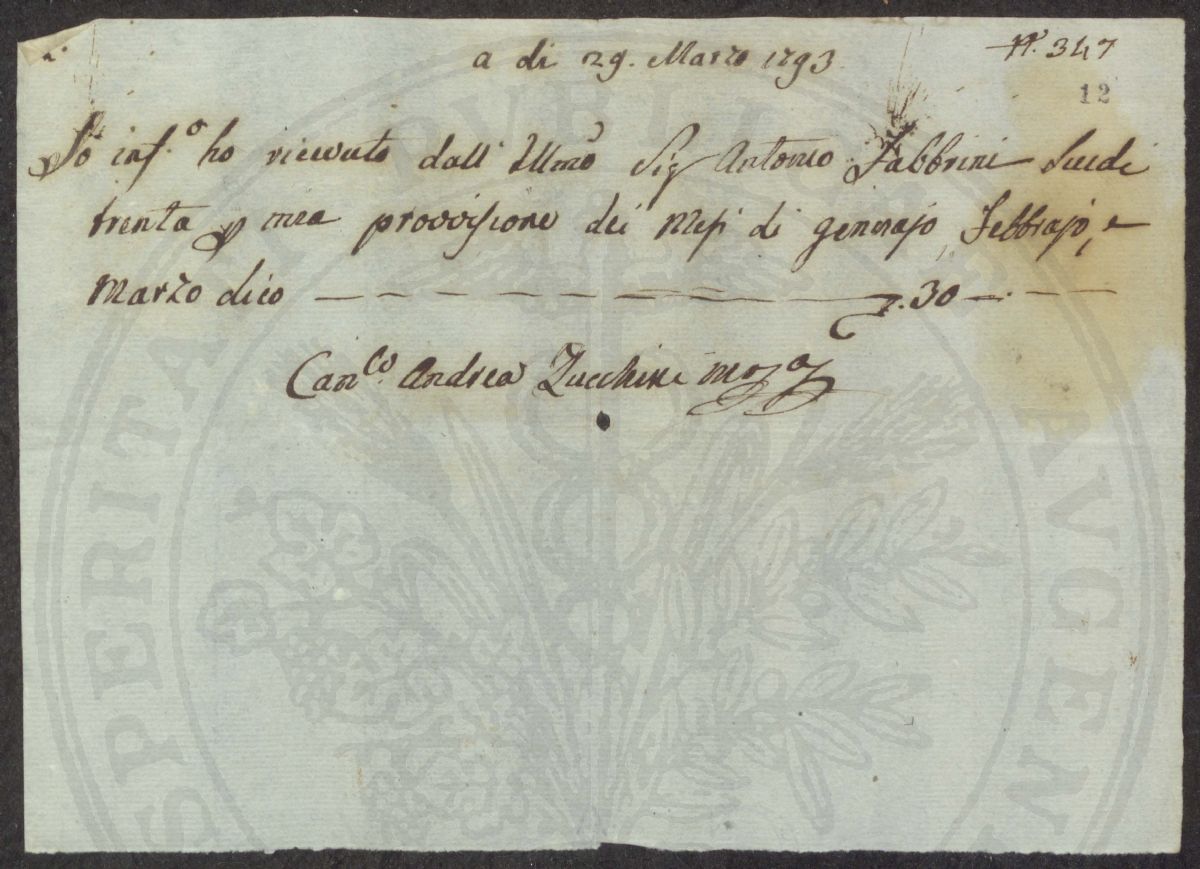 a di 29. Marzo 1793
N.° 347
12
Io inf.o ho ricevuto dall' Illmo Sig Antonio Fabbrini Scudi
trenta p mia provvisione dei Mesi di gennajo, Febbrajo, e
Marzo dico — — — — — — — — — 30 — . — —
Can.co Andrea Zucchini
PROSPERITATI PUBLICAE AVGEN